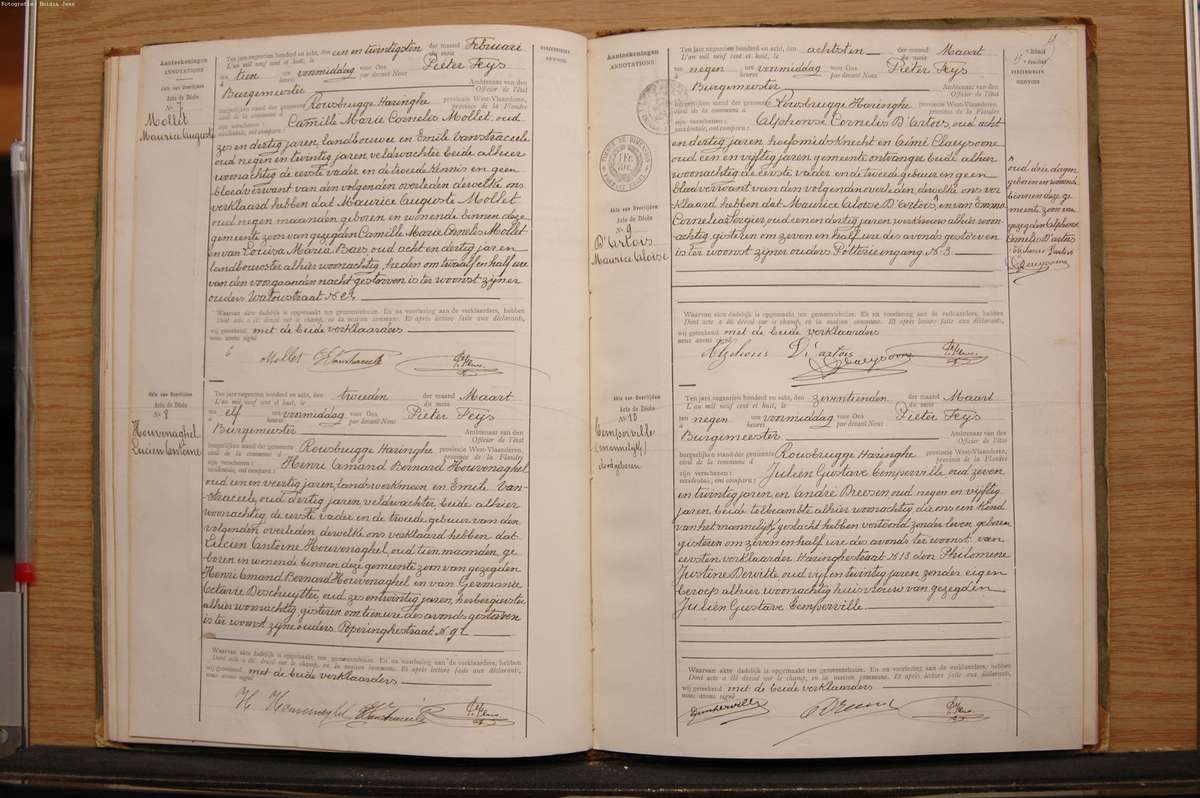 Fotografie: Boidin Jean
Aanteekeningen
ANNOTATIONS
Akte van Overlijden
Acte de Décès
Nr 7
Mollet
Maurice Auguste
Ten jare negentien honderd en acht, den een en twintigsten der maand Februari
L'an mil neuf cent et huit, le du mois
ten tien ure voormiddag voor Ons Pieter Feys
à heures par devant Nous
Burgemeester Ambtenaar van den
Officier de l'état
burgerlijken stand der gemeente Rousbrugge Haringhe provincie West-Vlaanderen,
civil de la commune d province de la Flandre
zijn verschenen: Camille Marie Cornelis Mollet, oud
occidentale, ont comparu:
zes en dertig jaren, landbouwer en Emile Vanstraceele
oud negen en twintig jaren, veldwachter beide alhier
woonachtig de eerste vader en de tweede kennis en geen
bloedverwant van den volgenden overleden dewelke ons
verklaard hebben dat Maurice Auguste Mollet
oud negen maanden geboren en wonende binnen deze
gemeente zoon van gezegden Camille Marie Cornelis Mollet
en van Louisa Maria Baes oud acht en dertig jaren
landbouwster alhier woonachtig, heden om twaalf en half ure
van den voorgaanden nacht gestorven is ter woonst zijner
ouders Watoustraat N.
Waarvan akte dadelijk is opgemaakt ten gemeentehuize. En na voorlezing aan de verklaarders, hebben
Dont acte a été dressé sur le champ, en la maison commune. Et après lecture faite aux déclarants,
wij geteekend met de beide verklaarders
nous avons signé
C Mollet EVanstraceele P. Feys
Akte van Overlijden
Acte de Décès
Nr 8
Houvenaghel
Lucien Antoine
Ten jare negentien honderd en acht, den tweeden der maand Maart
L'an mil neuf cent et huit, le du mois
ten elf ure voormiddag voor Ons Pieter Feys
à heures par devant Nous
Burgemeester Ambtenaar van den
Officier de l'état
burgerlijken stand der gemeente Rousbrugge Haringhe provincie West-Vlaanderen,
civil de la commune d province de la Flandre
zijn verschenen: Henri Amand Bernard Houvenaghel
occidentale, ont comparu:
oud een en veertig jaren, landswerkmeen en Emile Van-
straceele oud dertig jaren, veldwachter, beide alhier
woonachtig, de eerste vader en de tweede gebuur van den
volgenden overleden, dewelke ons verklaard hebben dat
Lucien Antoine Houvenaghel, oud tien maanden, ge-
boren en wonende binnen deze gemeente zoon van gezegden
Henri Amand Bernard Houvenaghel en van Germanie
Octavie Deschuytter oud zes en twintig jaren, herbergierster
alhier woonachtig, gisteren om tien ure des avonds gestorven
is ter woonst zijner ouders Poperinghestraat N. 92
Waarvan akte dadelijk is opgemaakt ten gemeentehuize. En na voorlezing aan de verklaarders, hebben
Dont acte a été dressé sur le champ, en la maison commune. Et après lecture faite aux déclarants,
wij geteekend met de beide verklaarders
nous avons signé
H Houvenaghel EVanstraceele P. Feys
Aanteekeningen
ANNOTATIONS
Akte van Overlijden
Acte de Décès
Nr 9
D'Artois
Maurice Aloïse
Ten jare negentien honderd en acht, den achtsten der maand Maart
L'an mil neuf cent et huit, le du mois
ten negen ure voormiddag voor Ons Pieter Feys
à heures par devant Nous
Burgemeester Ambtenaar van den
Officier de l'état
burgerlijken stand der gemeente Rousbrugge Haringhe provincie West-Vlaanderen,
civil de la commune d province de la Flandre
zijn verschenen: Alphonse Cornelis D'Artois, oud acht
occidentale, ont comparu:
en dertig jaren, hoefsmidsknecht en Aimé Claeysoone
oud een en vijftig jaren gemeente ontvanger beide alhier
woonachtig de eerste vader en de tweede gebuur en geen
bloedverwant van den volgenden overleden dewelke ons ver-
klaard hebben dat Maurice Aloïse D'Artois, en van Emma
Cornelia Lorgier oud een en dertig jaren, werkvrouw alhier woon-
achtig, gisteren om zeven en half ure des avonds gestorven
is ter woonst zijner ouders Pottzieingang N. 3.
oud drie dagen,
geboren en wonende
binnen deze ge-
meente, zoon van
gezegden Alphonse
Cornelis D'artois
Claeysoone
Waarvan akte dadelijk is opgemaakt ten gemeentehuize. En na voorlezing aan de verklaarders, hebben
Dont acte a été dressé sur le champ, en la maison commune. Et après lecture faite aux déclarants,
wij geteekend met de beide verklaarders
nous avons signé
Alphons D'artois Claeysoone P. Feys
Akte van Overlijden
Acte de Décès
Nr 10
Cemperville
(mannelijk)
doodgeboren
Ten jare negentien honderd en acht, den zeventienden der maand Maart
L'an mil neuf cent et huit, le du mois
ten negen ure voormiddag voor Ons Pieter Feys
à heures par devant Nous
Burgemeester Ambtenaar van den
Officier de l'état
burgerlijken stand der gemeente Rousbrugge Haringhe provincie West-Vlaanderen,
civil de la commune d province de la Flandre
zijn verschenen: Julien Gustave Cemperville oud zeven
occidentale, ont comparu:
en twintig jaren, en André Dreesen oud negen en vijftig
jaren, beide tolbeambte alhier woonachtig, die ons een Kind
van het mannelijk geslacht hebben vertoond zonder leven, geboren
gisteren om zeven en half ure des avonds te woonst van
eersten verklaarder Haringhestraat N. 13. door Philomene
Justine Dewitte oud vijf en twintig jaren zonder eigen
beroep alhier woonachtig huisvrouw van gezegden
Julien Gustave Cemperville.
Waarvan akte dadelijk is opgemaakt ten gemeentehuize. En na voorlezing aan de verklaarders, hebben
Dont acte a été dressé sur le champ, en la maison commune. Et après lecture faite aux déclarants,
wij geteekend met de beide verklaarders
nous avons signé
P. Feys